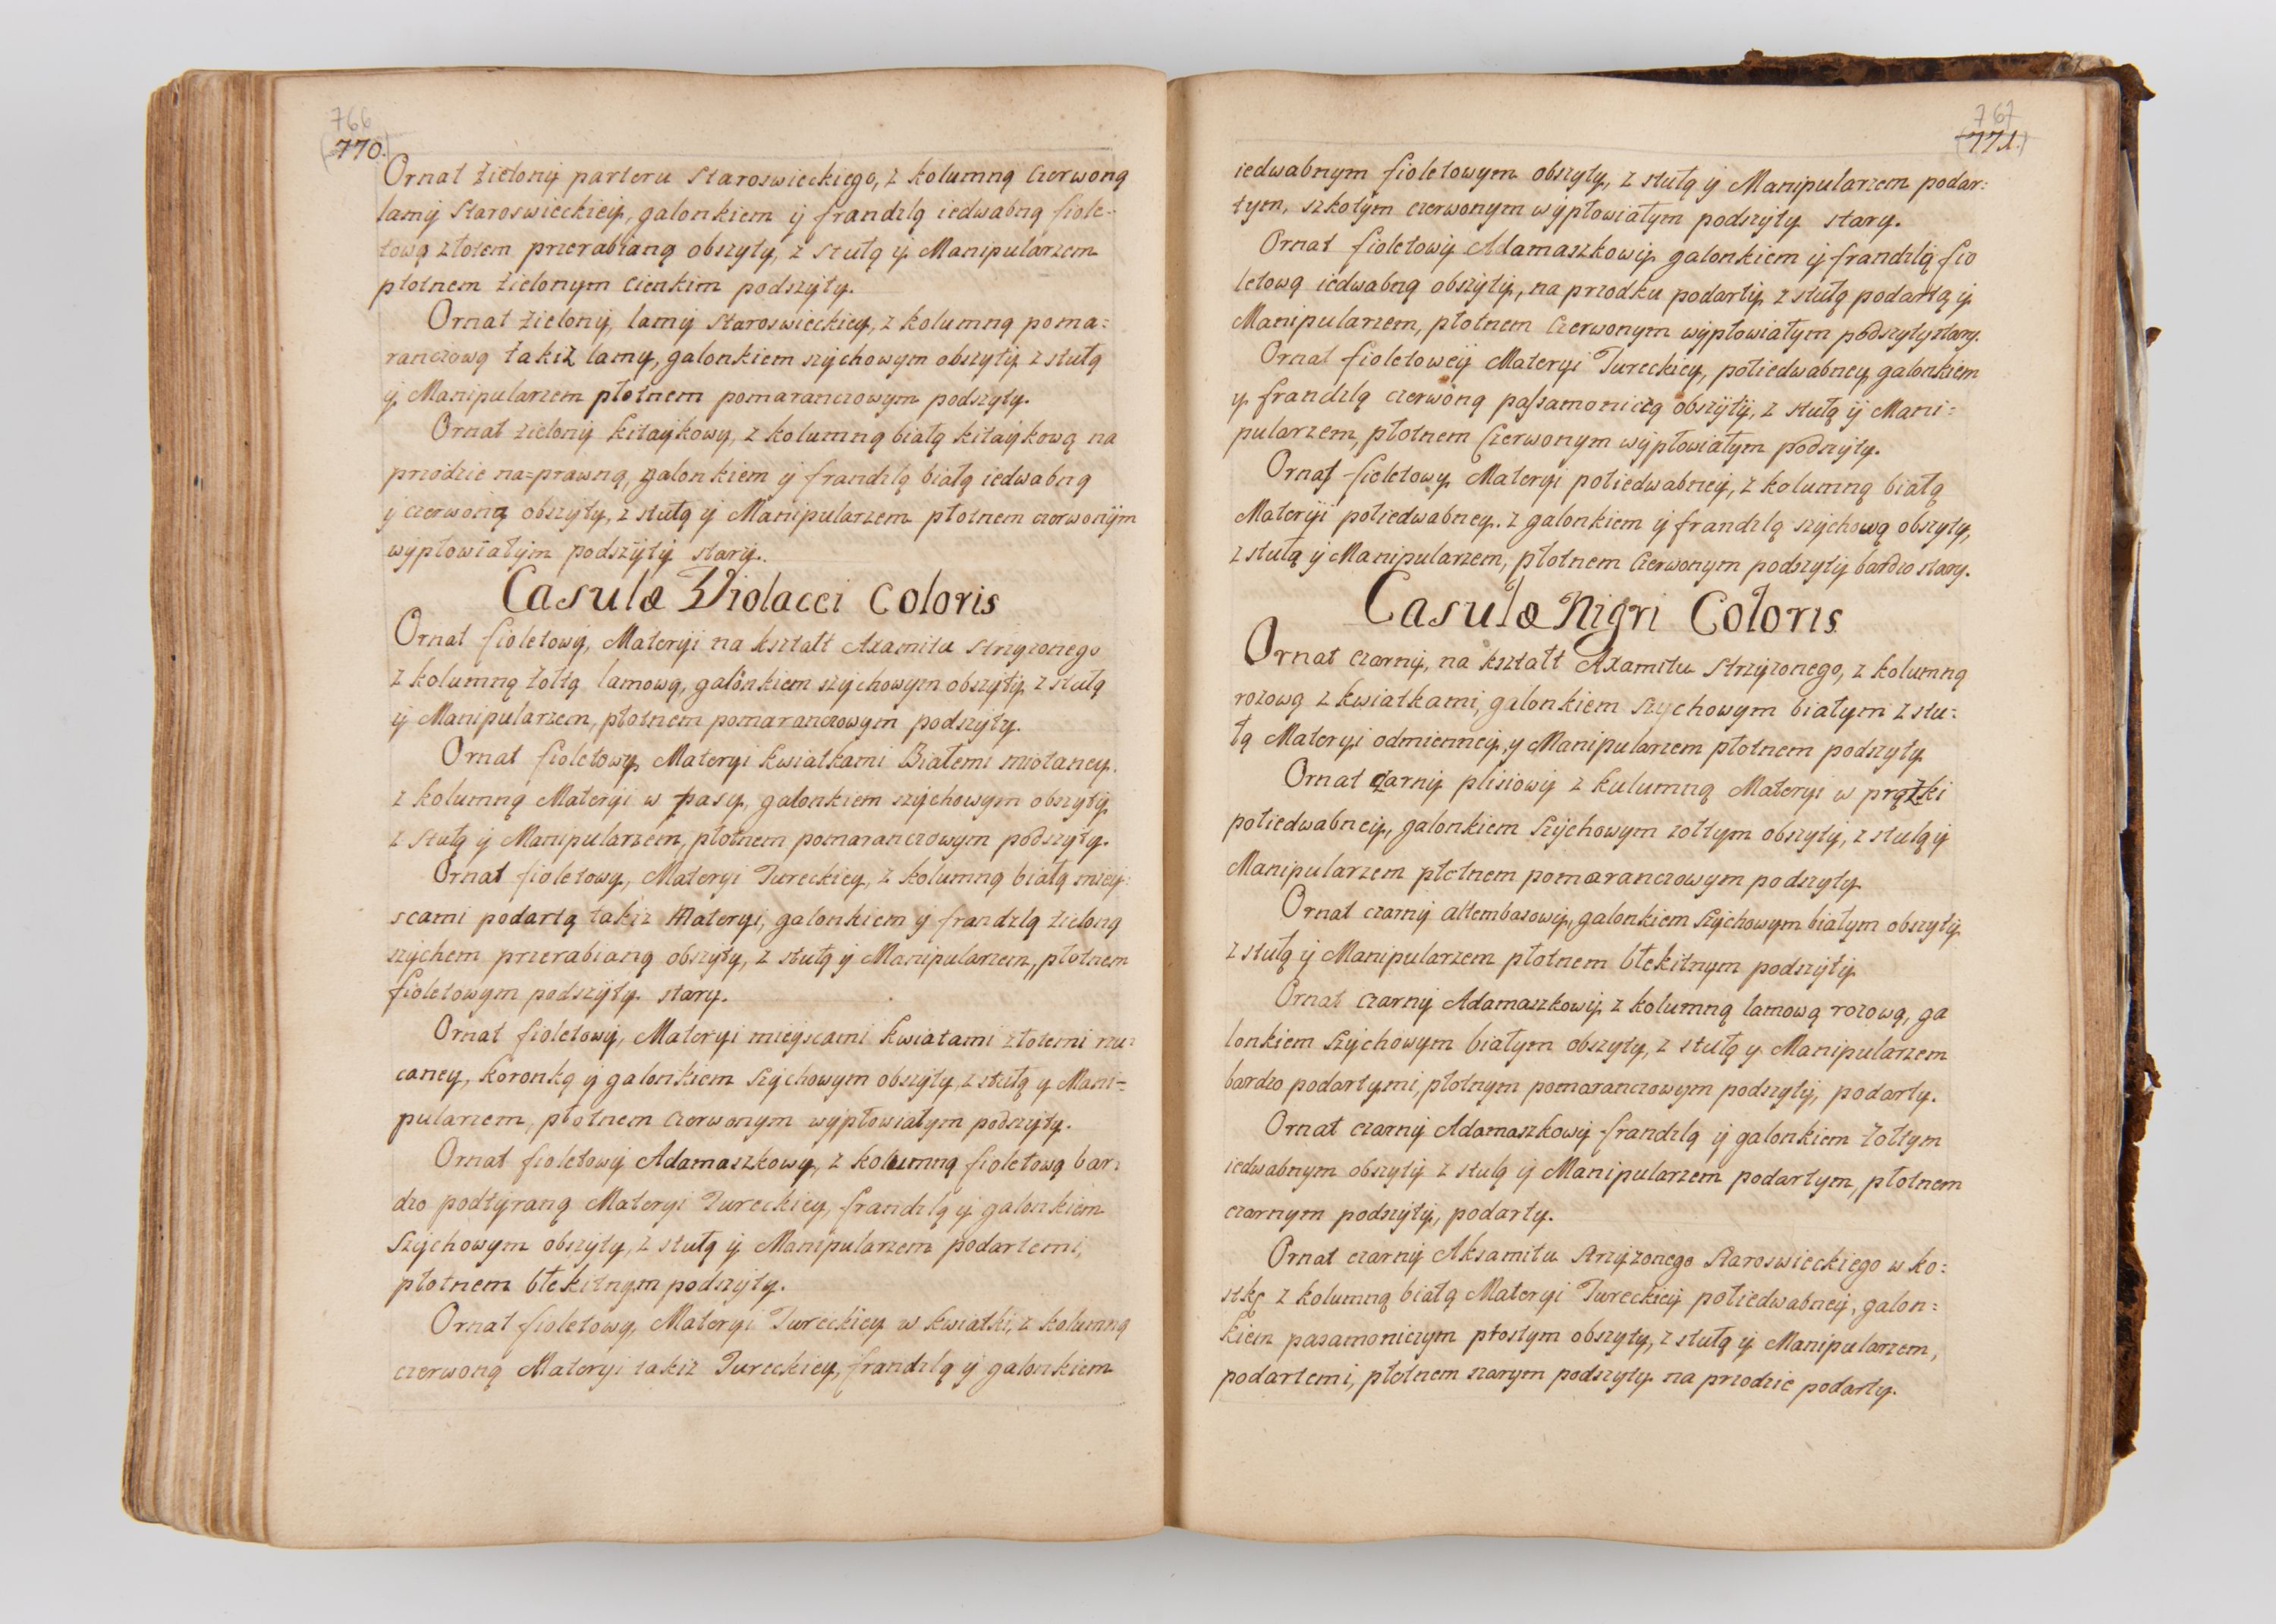 766
770.
Ornat zielony parteru staroswieckiego, z kolumną czerwoną
lamÿ staroswieckieÿ, galonkiem ÿ frandzlą iedwabną fiole-
tową złotem przerabianą obszyty, z stułą ÿ Manipularzem
płotnem zielonym cienkim podszyty.
Ornat zielonÿ, lamÿ staroswieckiey, z kolumną poma:
ranczową takiż lamy, galonkiem szÿchowym obszytÿ z stułą
ÿ Manipularzem płotnem pomaranczowym podszyty.
Ornat zielonÿ kitaykowy, z kolumną białą kitaykową na
przodzie na=prawną, galonkiem ÿ frandzlą białą iedwabną
ÿ czerwoną obszÿty, z stułą ÿ Manipularzem płotnem czerwonÿm
wÿpłowiałÿm podszÿtÿ starÿ.
Casulæ Violacei Coloris
Ornat fioletowÿ, Materyi na kształt Axamitu strzyzonego
z kolumną żołtą lamową, galonkiem szÿchowym obszÿtÿ z stułą
ÿ Manipularzem, płotnem pomaranczowym podszyty.
Ornat fioletowy Materyi kwiatkami Białemi miotaney.
z kolumną Materÿi w pasy, galonkiem szÿchowym obszÿtÿ
z stułą ÿ Manipularzem, płotnem pomaranczowym podszyty.
Ornat fioletowy, Materyi Tureckiey, z kolumną białą miey:
scami podartą takiz Materyi, galonkiem ÿ frandzlą zieloną
szÿchem przerabianą obszyty, z stułą ÿ Manipularzem, płotnem
fioletowym podszÿty stary.
Ornat fioletowÿ, Materyi mieÿscami kwiatami złotemi rzu:
caney, koronką ÿ galonkiem szÿchowym obszÿty, z stułą y Mani=
pularzem, płotnem czerwonym wÿpłowiałym podszÿty.
Ornat fioletowÿ Adamaszkowy, z kolumną fioletową bar:
dzo podtÿraną Materyi Tureckiey, frandzlą ÿ galonkiem
szÿchowym obszyty, z stułą ÿ Manipularzem podartemi,
płotnem błekitnym podszÿty.
Ornat fioletowy, Materyi Tureckiey w kwiatki, z kolumną
czerwoną Materyi takiz Tureckiey, frandzlą ÿ galonkiem
767
771.
iedwabnym fioletowym obszyty, z stułą ÿ Manipularzem podar:
tym, szkotym czerwonym wÿpłowiałym podszÿty stary.
Ornat fioletowÿ Adamaszkowÿ galonkiem ÿ frandzlą fio
letową iedwabną obszÿtÿ, na przodku podartÿ z stułą podartą ÿ
Manipularzem, płotnem czerwonym wypłowiałym podszyty stary.
Ornat fioletoweÿ Materyi Tureckiey, połiedwabney galonkiem
y frandzlą czerwoną passamoniczą obszÿtÿ, z stułą ÿ Mani=
pularzem, płotnem czerwonym wÿpłowiałym podszÿty.
Ornat fioletowy Materyi połiedwabneÿ, z kolumną białą
Materÿi połiedwabney. z galonkiem ÿ frandzlą szÿchową obszyty,
z stułą ÿ Manipularzem, płotnem czerwonym podszyty bardzo stary.
Casulæ Nigri Coloris
Ornat czarnÿ, na kształt Axamitu strzÿzonego, z kolumną
rozową z kwiatkami, galonkiem szychowym białym z stu:
łą Materyi odmienneÿ, y Manipularzem płotnem podszyty
Ornat czarnÿ plisiowÿ z kulumną Materyi w prążki
połiedwabneÿ, galonkiem szÿchowym zołtym obszytÿ, z stułą ÿ
Manipularzem płotnem pomaranczowym podszyty
Ornat czarnÿ altembasowÿ, galonkiem szÿchowym białym obszytÿ
z stułą ÿ Manipularzem płotnem błekitnym podszÿtÿ
Ornat czarnÿ Adamaszkowÿ z kolumną lamową rozową, ga
lonkiem szÿchowym białym obszyty, z stułą y Manipularzem
bardzo podartymi, płotnym pomaranczowym podszytÿ, podarty.
Ornat czarnÿ Adamaszkowÿ frandzlą ÿ galonkiem żołtym
iedwabnym obszytÿ z stułą ÿ Manipularzem podartym, płotnem
czarnym podszÿtÿ, podarty.
Ornat czarnÿ Aksamitu strzÿzonego staroswieckiego w ko:
stkę z kolumną białą Materyi Tureckieÿ połiedwabneÿ, galon=
kiem pasamoniczym płostym obszyty, z stułą ÿ Manipularzem,
podartemi, płotnem szarym podszyty na przodzie podarty.